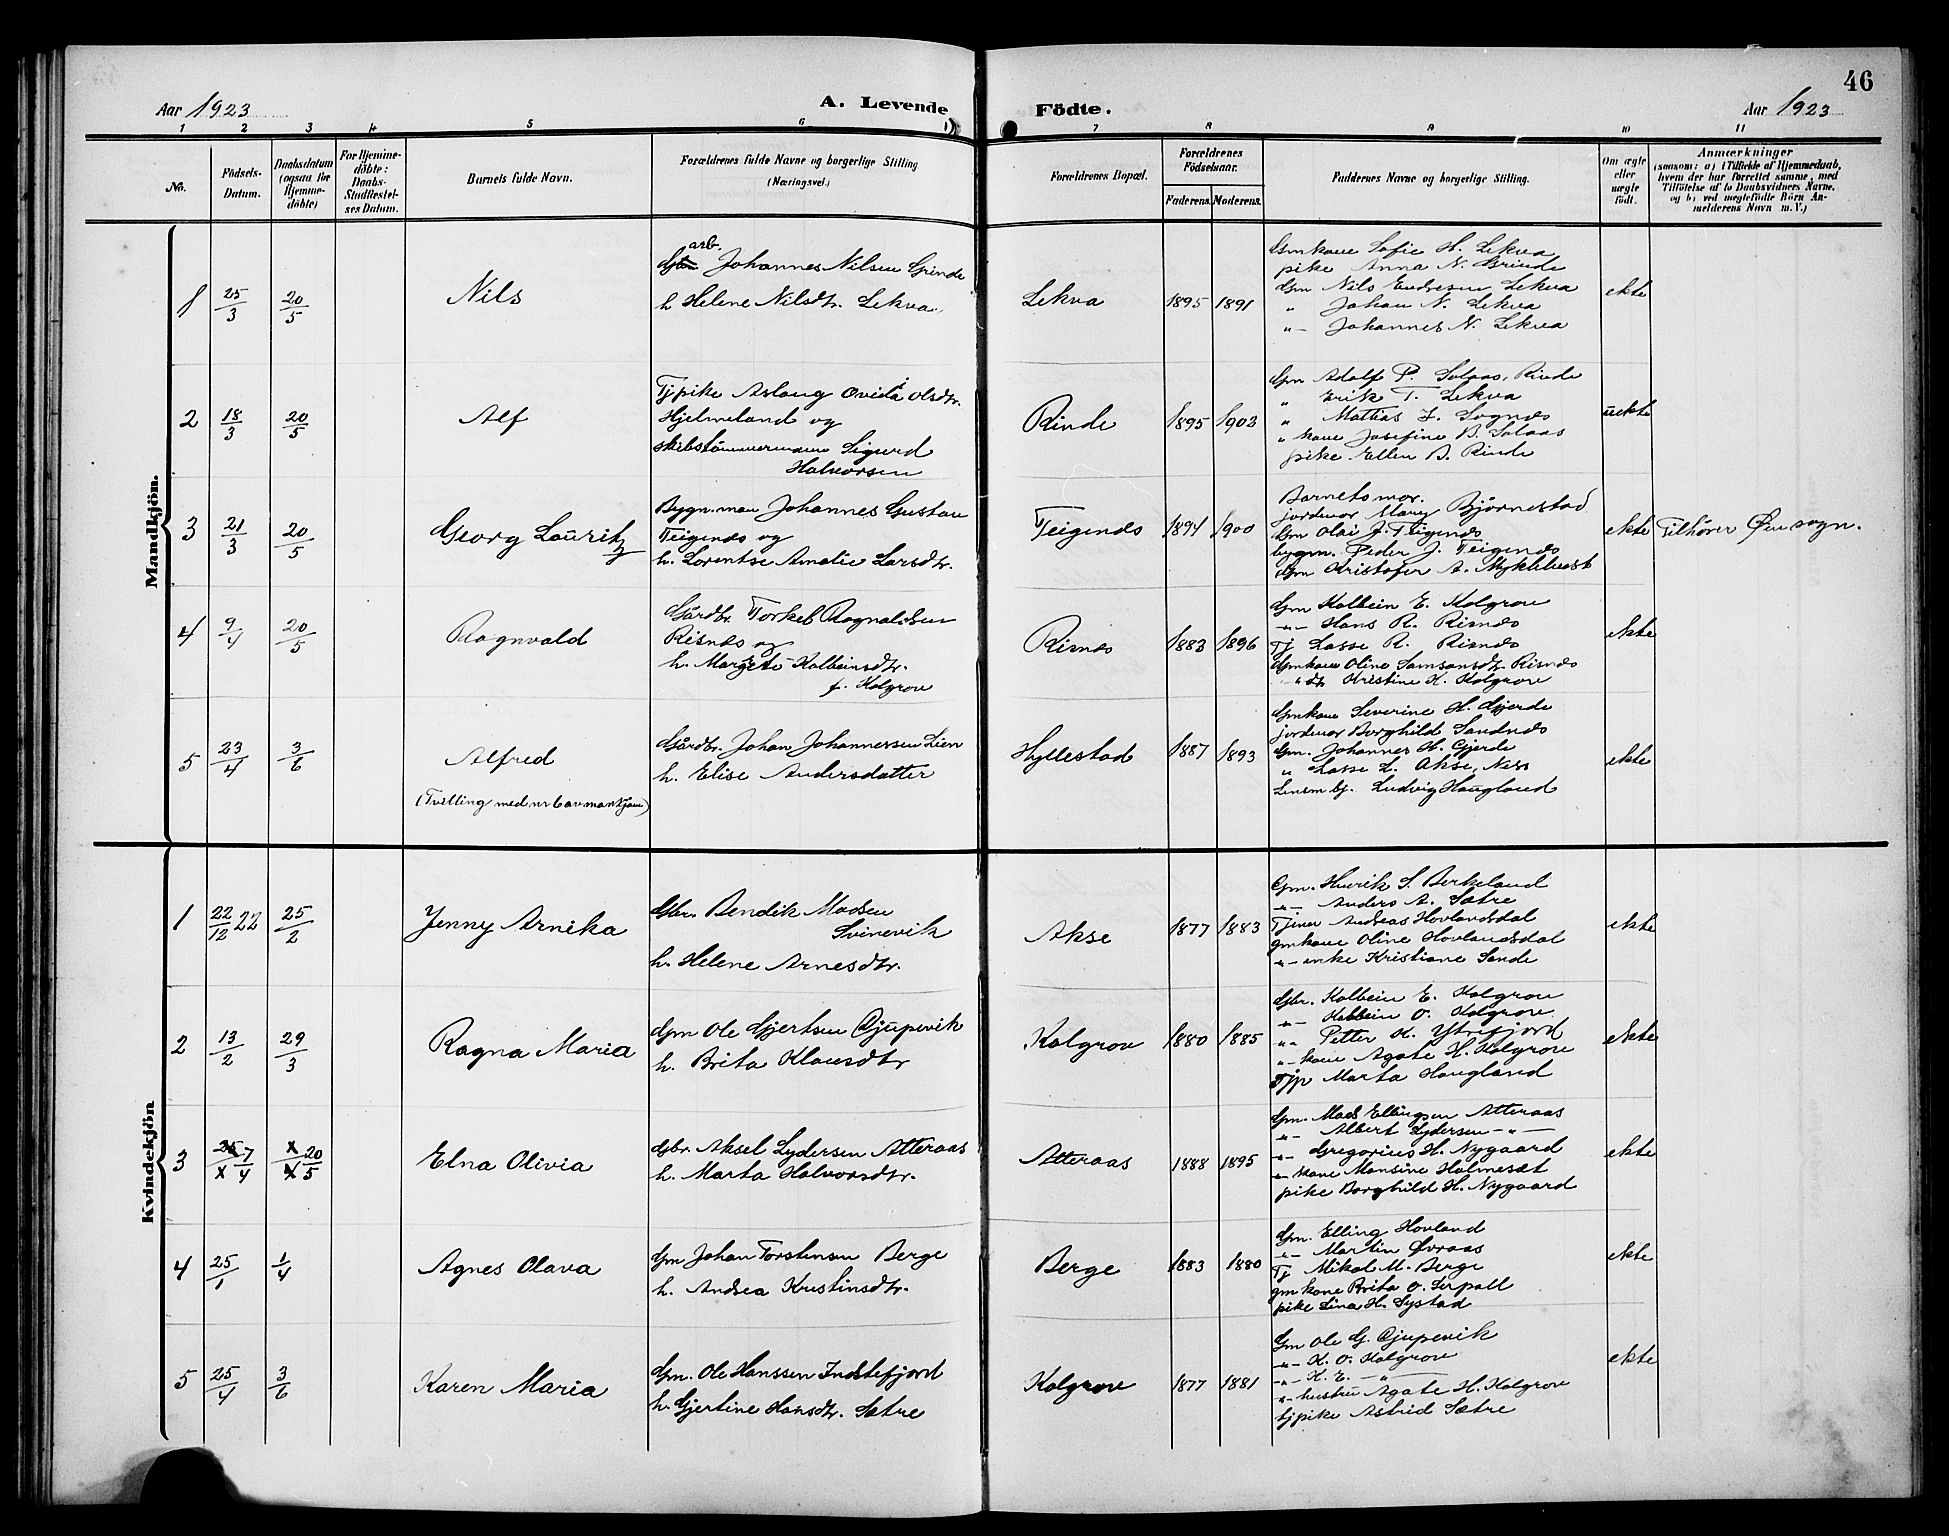 46
Aar 1923
A. Levende Födte.
Aar 1923
1 2 3 4 5 6 7 8 9 10 11
No.
Födsels-
Datum.
Daabsdatum
(ogsaa for
Hjemme-
döbte)
For Hjemme-
döbte:
Daabs-
Stadfæstel-
ses Datum.
Barnets fulde Navn.
Forældrenes fulde Navne og borgerlige Stilling
(Næringsvei.)
Forældrenes Bopæl.
Forældrenes
Födselsaar.
Faderens. Moderens.
Faddernes Navne og borgerlige Stilling.
Om ægte
eller
uægte
födt.
Anmærkninger
(saasom: a) i Tilfælde af Hjemmedaab,
hvem der har forrettet samme, med
Tilföielse af to Daabsvidners Navne,
og b) ved uægtefödte Börn An-
melderens Navn m. V.)
Mandkjön.
1 25/3 20/5 Nils
arb.
Johannes Nilsen Grinde
h Helene Nilsdtr. Lekva
Lekva 1895 1891
Gmkone Sofie H. Lekva
pike Anna N. Grinde
Gm Nils Endresen Lekva
" Johan N. Lekva
"- Johannes N. Lekva
ekte
2 18/3 20/5 Alf
Tjpike Aslaug Ovidia Olsdtr.
Hjelmeland og
skibstömmermann Sigurd
Halvorsen
Rinde 1895 1903
Gm Adolf P. Solaas, Rinde
" Erik T. Lekva
" Mattias J. Sognes
" kone Josefine B. Solaas
pike Ellen B. Rinde
uekte
3 21/3 20/5 Georg Lauritz
Bygn.man Johannes Gustav
Teigenes og
h. Lorentse Amalie Larsdtr.
Teigenes 1894 1900
Barnets mor.
jordmor Mary Bjørnestad
Gm Olai J. Teigenes
bygm. Peder J. Teigenes
Gm Kristofer A. Myklebust
ekte Tilhører Øen sogn.
4 9/4 20/5 Ragnvald
Gårdbr. Torkel Ragnaldsen
Risnes og
h. Margete Kolbeinsdtr.
f. Kolgrov
Risnes 1883 1896
Gm Kolbein E. Kolgrov
-"- Hans R. Risnes
Tj Lasse R. Risnes
Gmkone Oline Samsonsdtr. Risnes
-" dtr Kristine K. Kolgrov
ekte
5 23/4 3/6 Alfred
(Tvilling med nr 6 av mankjøn)
Gårdbr. Johan Johannessen Lien
h. Elise Andersdatter
Hyllestad 1887 1893
Gmkone Severine H. Gjerde
jordmor Borghild Sandnes
Gm. Johannes H. Gjerde
" Lasse L. Akse, Ness
Lensm bj. Ludvig Haugland
ekte
Kvindekjön
1 22/12 22 25/2 Jenny Arnika
Gbr. Bendik Madsen
Svinevik
h. Helene Arnesdtr.
Akse 1877 1883
Gm. Henrik S. Berkeland
-"- Anders A. Sætre
Tjener Andreas Hovlandsdal
gmkone Oline Hovlandsdal
-"- enke Kristiane Sande
ekte
2 13/2 29/3 Ragna Maria
Gm Ole Gjertsen Djupevik
h. Brita Klausdtr
Kolgrov 1880 1885
Gbr. Kolbein E. Kolgrov
-"- Kolbein O. Kolgrov
"- Petter K. Ytrefjord
"- kone Agate H. Kolgrov
Tjp Marta Haugland
ekte
3 7/4 20/5 Elna Olivia
Gbr. Aksel Lydersen Atteraas
h. Marta Halvorsdtr.
Atteraas 1888 1895
Gm. Mads Ellingsen Atteraas
-"- Albert Lydersen -"-
-"- Gregorius H. Nygaard
-"- kone Monsine Holmeset
pike Borghild H. Nygaard
ekte
4 25/1 1/4 Agnes Olava
Gm Johan Torstensen Berge
h. Andrea Kristinsdtr.
Berge 1883 1880
Gm. Elling Hovland
-"- Martin Øvraas
Tj Mikal M. Berge
gm kone Brita O. Serpoll
pike Lina H. Systad
ekte
5 25/4 3/6 Karen Maria
Gm. Ole Hanssen Indrefjord
h. Gjertine Hansdtr. Sætre
Kolgrov 1877 1881
Gm Ole G. Djupevik
-"- K. O. Kolgrov
-"- K. E. -"-
-"- hustru Agate H. Kolgrov
tjpike Astrid Sætre
ekte